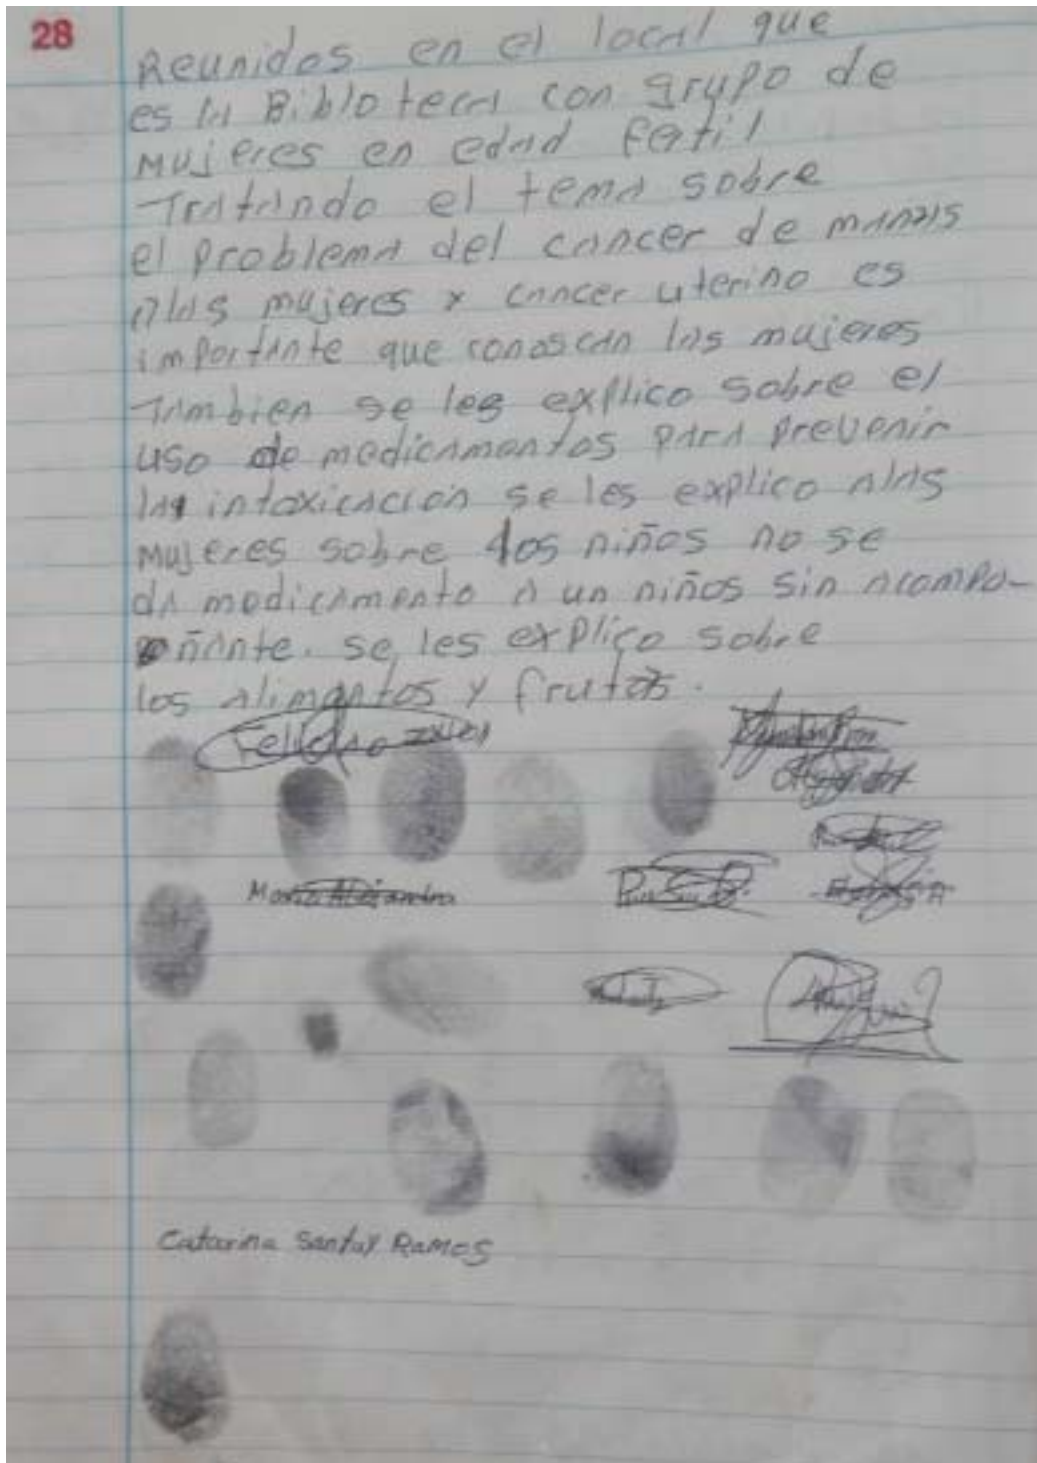 28
Reunidos en el local que
es la Biblioteca con grupo de
mujeres en edad fertil
Tratando el tema sobre
el problema del cancer de mamas
alas mujeres y cancer uterino es
importante que conoscan las mujeres
Tambien se les explico sobre el
uso de medicamentos para prevenir
la intoxicación se les explico alas
mujeres sobre los niños no se
da medicamento a un niños sin acompa-
ñante. se les explico sobre
los alimentos y frutas.
Maria Alejandra
Catarina Santay Ramos